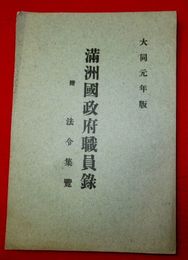 大同元年版
滿洲國政府職員錄
附 法令集覽